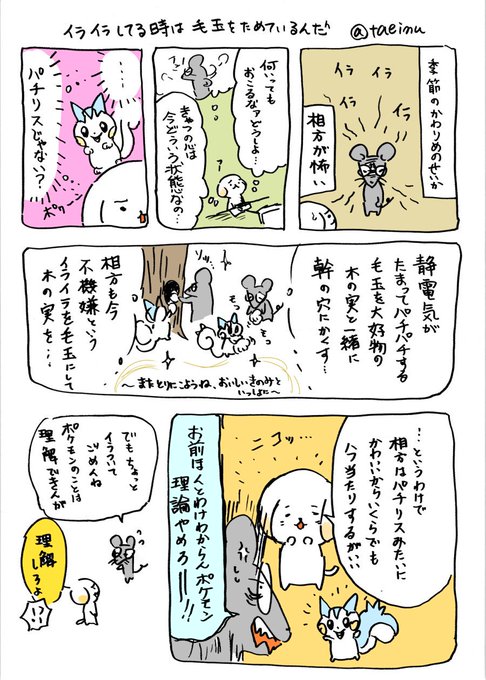 イライラしてる時は毛玉をためているんだ
@taeinu
季節のかわりめのせいか
イラ
イラ
イラ
イラ
相方が怖い
何いっても
おこるなアどうしよ…
きゃつの心は
今どういう状態なの…
…
パチリスじゃない?
ポケ〜
静電気が
たまってパチパチする
毛玉を大好物の
木の実と一緒に
幹の穴にかくす…
ソッ…
もっ
もっ
〜またとりにこようね、おいしいきのみと
いっしょに〜
相方も今
不機嫌という
イライラを毛玉にして
木の実を…
…というわけで
相方はパチリスみたいに
かわいからいくらでも
ハつ当たりするがい…
ニコッ…
お前は人とわけわからんポケモン
理論やめろー!!
でもちょっと
イラついて
ごめんね
ポケモンのことは
理解できんが
理解
しろよ
!?